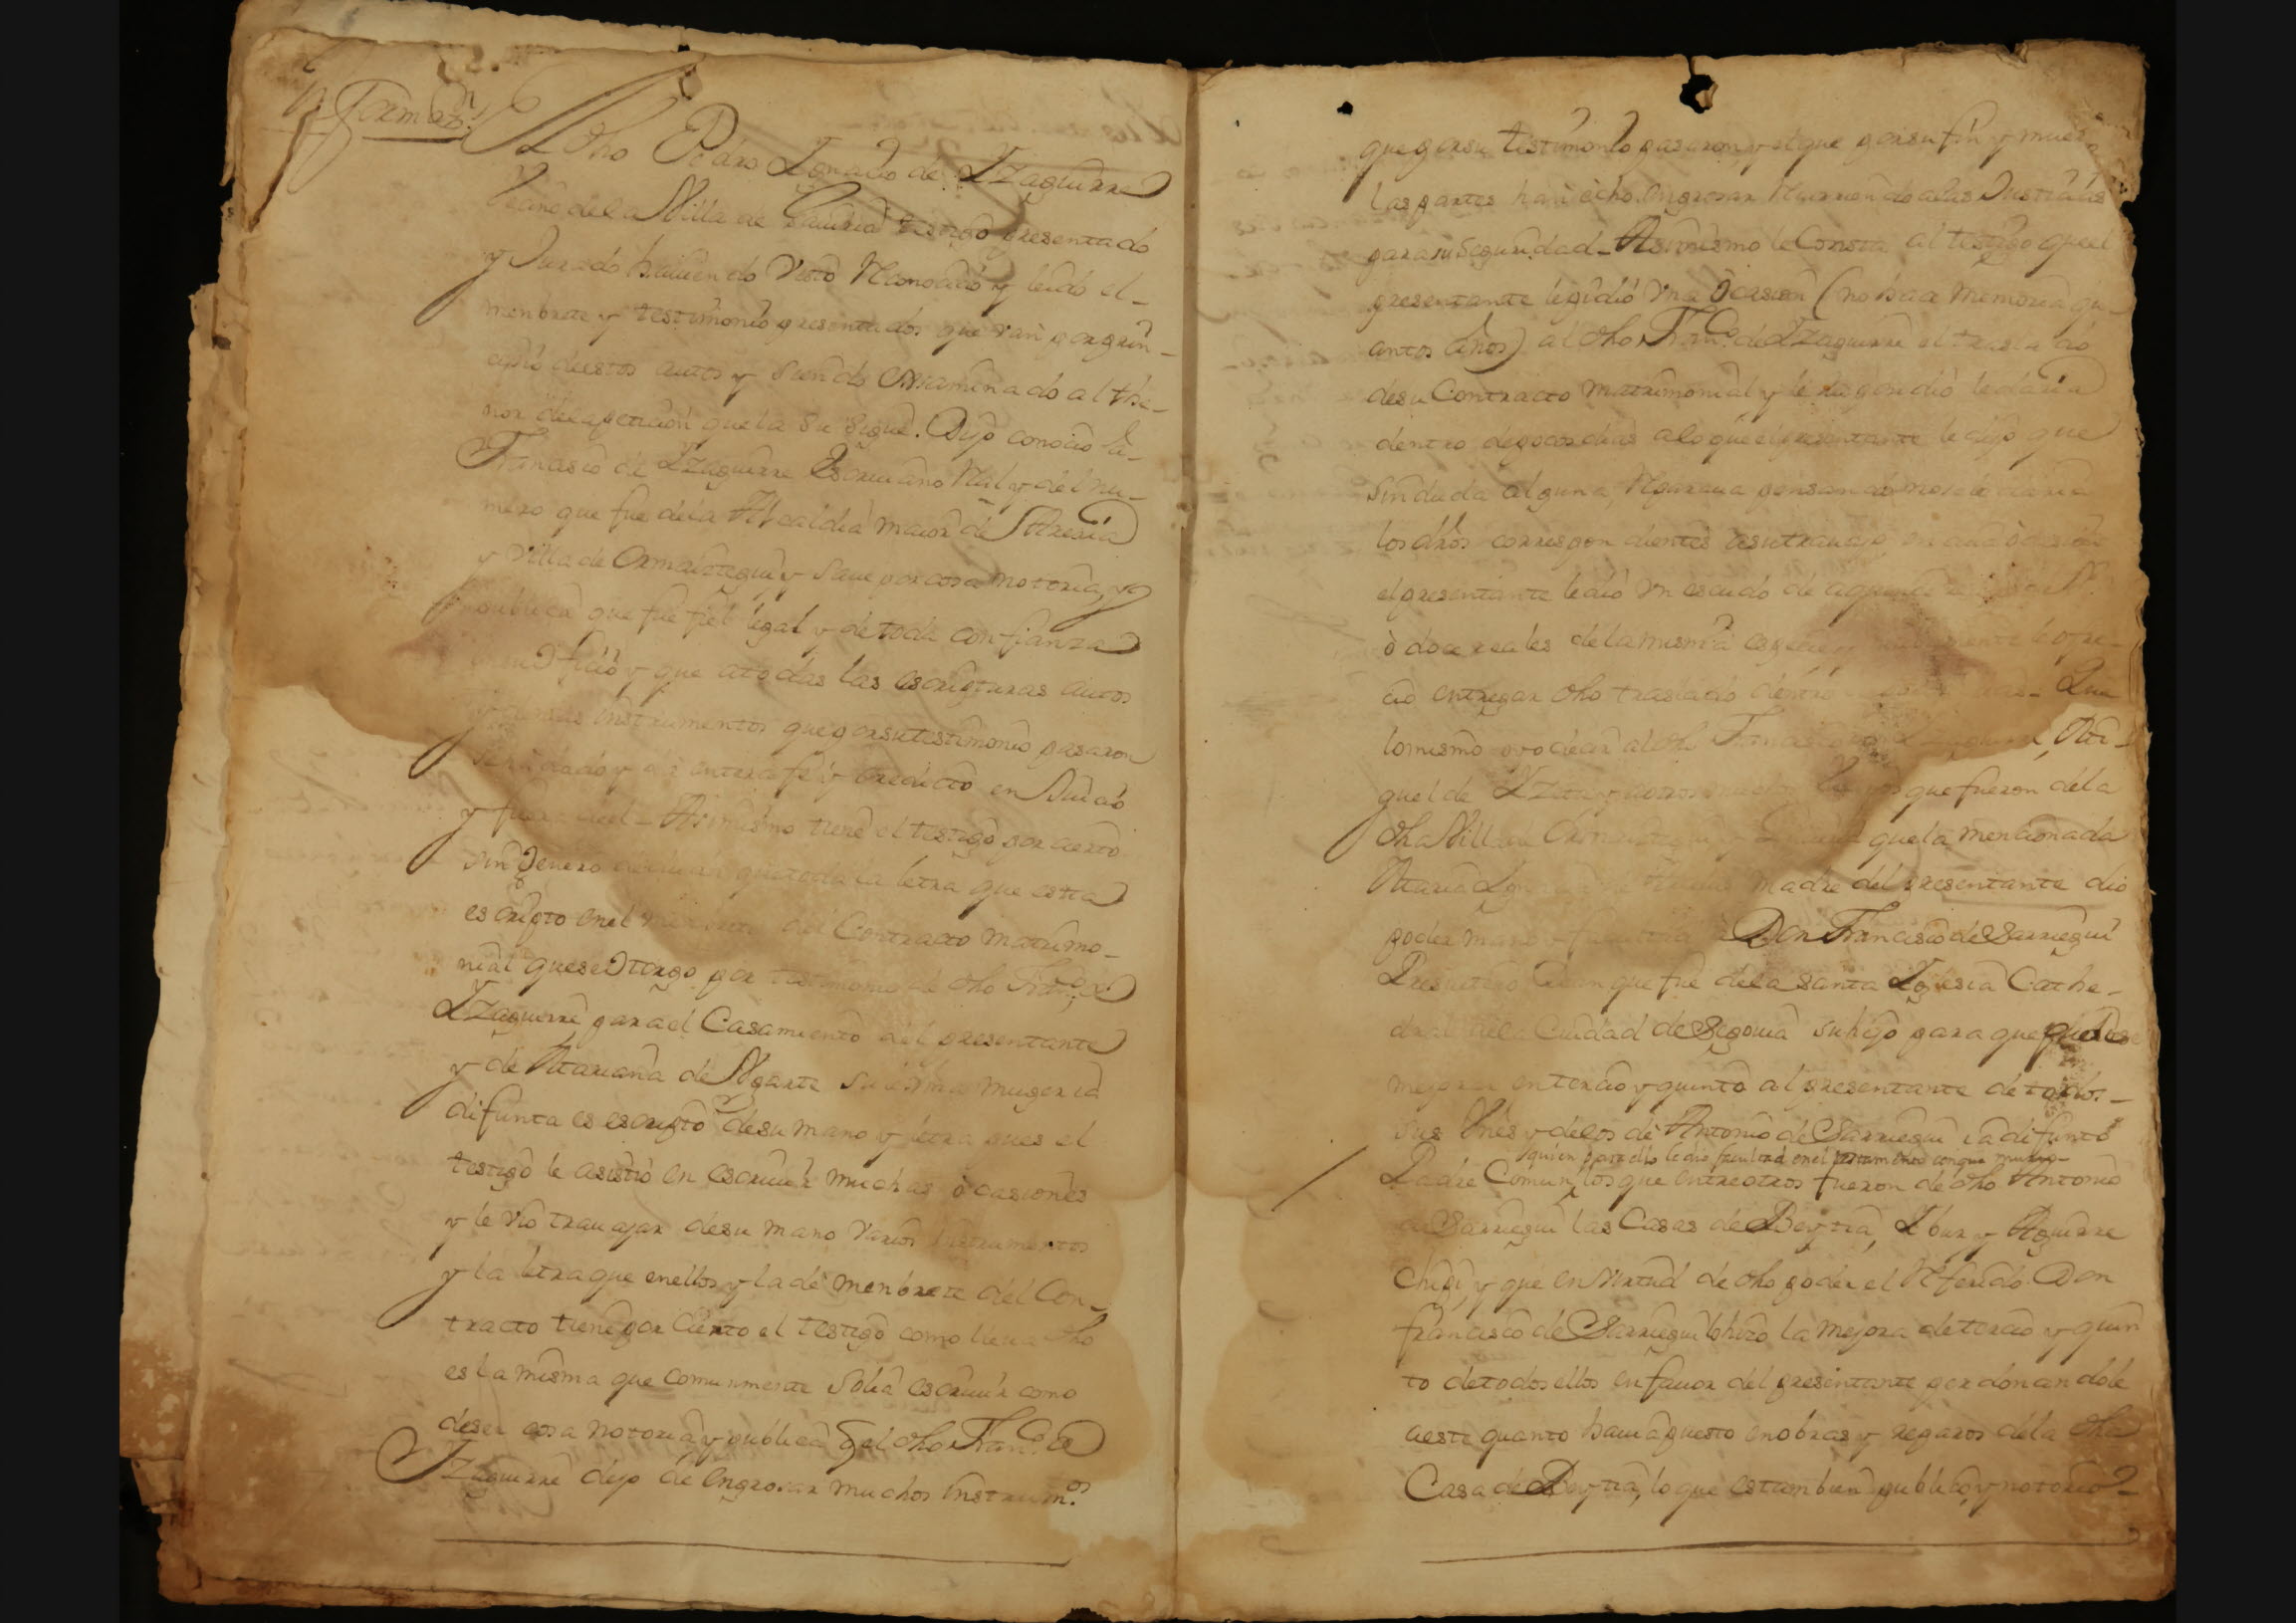 Ynformazn.
El dho Pedro Ygnacio de Yzaguirre
vecino de la Villa de Gauiria testigo presentado
y Jurado hauiendo visto Reconocido y leido el-
menbrete y testimonio presentados que van por prin-
cipio de estos autos y siendo exsaminado al the-
nor de la peticion que la su sigue. Dijo conocio a
Francisco de Yzaguirre Escriuano Real y del nu-
mero que fue de la Alcaldia maior de Areria
y Villa de Ormaiztegui y saue por cosa notoria, y
publica que fue fiel legal y de toda confianza
en su oficio y que a todas las escripturas autos
y demas instrumentos que por su testimonio pasaron
se ha dado y da entera fe y credicto en Juicio
y fuera de el- Asimismo tiene el testigo por cierto
sin genero que toda la letra que esta
escripto en el menbrete del Contracto matrimo-
nial que se otorgo por testimonio de dho Franco. de
Yzaguirre para el Casamiento del presentante
y de Mariana de Ugarte su lexma muger ia
difunta es escripto de su mano y letra pues el
testigo le asistio en escriuir muchas ocasiones
y le vio trauajar de su mano varios instrumentos
y la letra que en ellos y la de menbrete del Con-
tracto tiene por cierto el testigo como lleua dho
es la misma que comunmente solia escriuir como
de ser cosa notoria y publica q el dho Franco. de
Yzaguirre dejo de engrosar muchos instrumos.
que por su testimonio pasaron y el que por su fin y muer
las partes han echo engrosar Recurriendo a las Justicias
para su seguridad- Asimismo le Consta al testigo que el
presentante le pidio vna ocasion (no hace memoria qu-
antos años) al dho Franco. de Yzaguirre el traslado
de su Contracto matrimonial y le respondio le daria
dentro de pocos dias a lo que el presentante le dijo que
sin duda alguna, Reparaua pensando no se le daria
los dhos correspondientes a su trauajo, en cuia ocasion
el presentante le dio vn escudo de a quince
o doce reales de la misma especie le ofre-
cio entregar dho traslado dentro Que
lo mismo oyo decir al dho Francisco Mi-
guel de Yzaguirre y a otros que fueron de la
dha Villa de Ormaiztegui y que la mencionada
Maria madre del presentante dio
poder mano y facultad a Don Francisco de Sarriegui
Presuitero Dean que fue de la Santa Yglesia Cathe-
dral de la Ciudad de Segouia su hijo para que pudiese
mejorar en tercio y quinto al presentante de todos-
sus vnes y de los de Antonio de Sarriegui ia difunto
quien para ello le dio facultad en el testamento con que murio-
Padre Comun, los que entre otros fueron de dho Antonio
de Sarriegui las Casas de Beytia, Ybur y Aguirre
chipi, y que en virtud de dho poder el Referido Don
francisco de Sarriegui lo hizo la mejora de tercio y quin
to de todos ellos en fauor del presentante perdonandole
a este quanto hauia puesto en obras y reparos de la dha
Casa de Beytia, lo que es tambien publico, y notorio